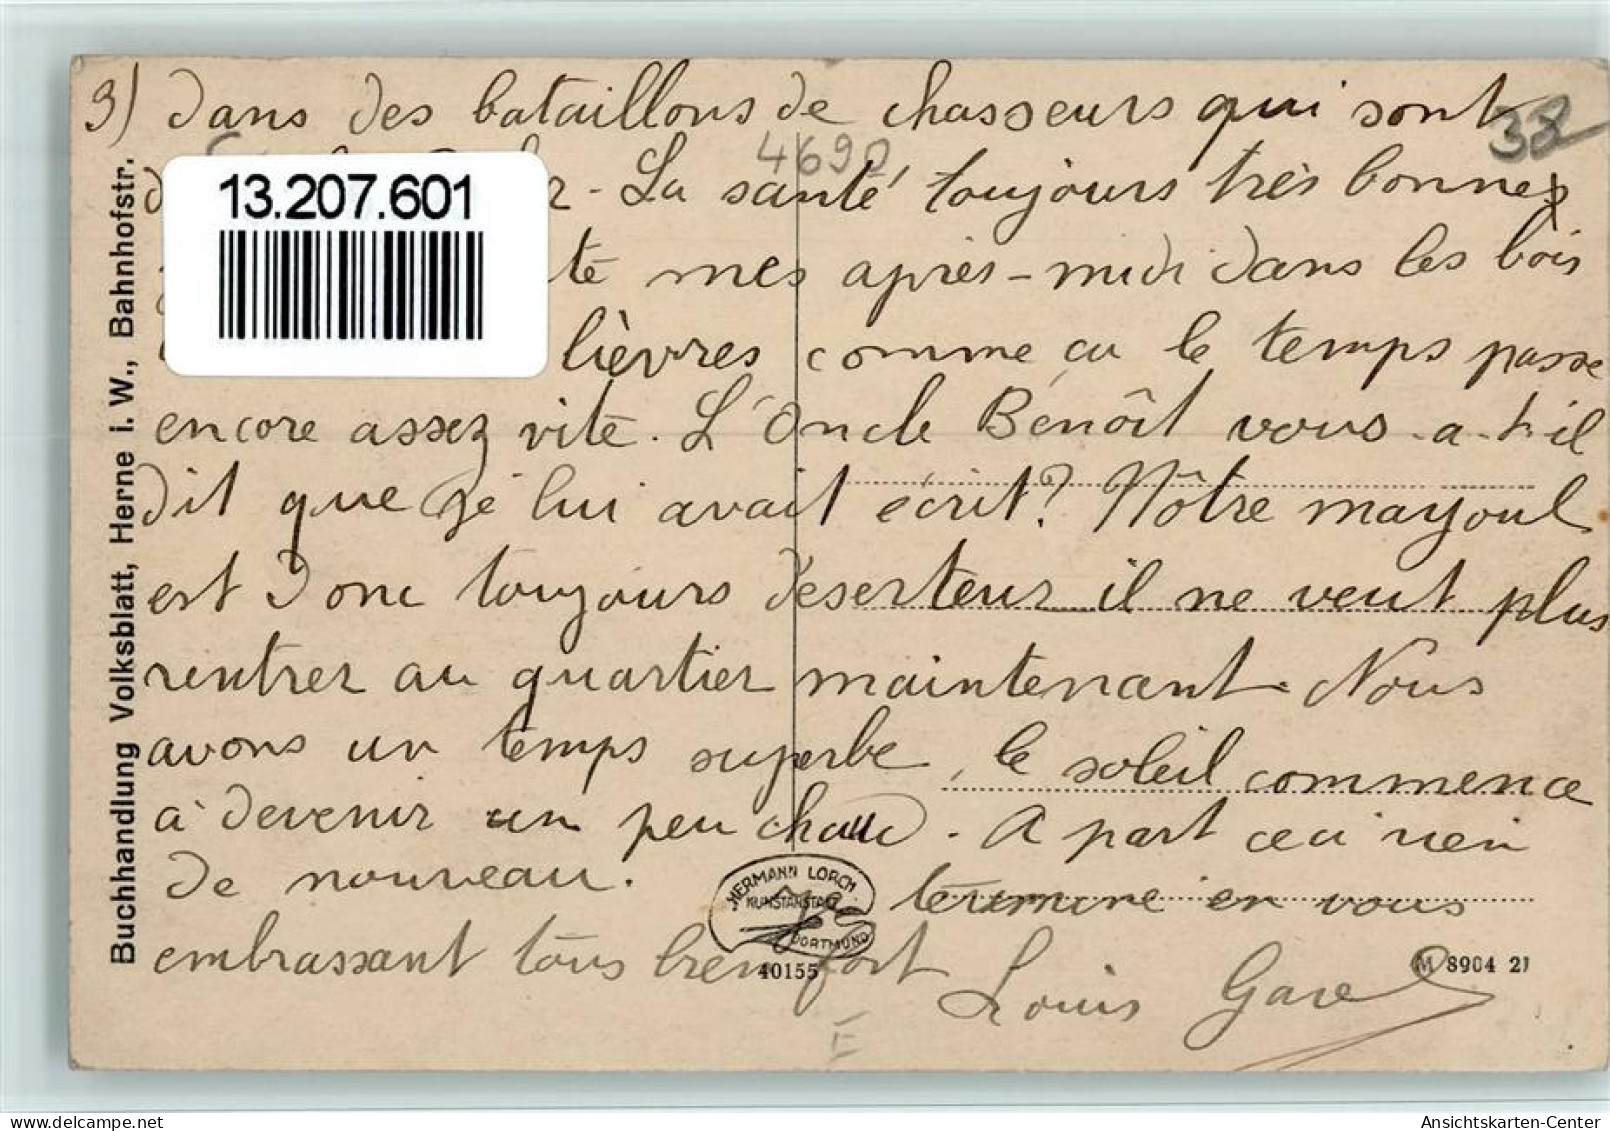 3) dans des bataillons de chasseurs qui sont 38
4690
La santé toujours très bonne
13.207.601
mes après-midi dans les bois
lièvres comme ça le temps passe
encore assez vite. L'Oncle Bénoît vous a-t-il
dit que je lui avait écrit? Nôtre mayoul
est donc toujours déserteur il ne veut plus
rentrer au quartier maintenant. Nous
avons un temps superbe, le soleil commence
à devenir un peu chaud. A part ceci rien
de nouveau. Je termine en vous
embrassant tous bien fort
Louis
HERMANN LORCH
KUNSTANSTALT
DORTMUND
40155
M 8904 21
Buchhandlung Volksblatt, Herne i. W., Bahnhofstr.
Ansichtskarten-Center